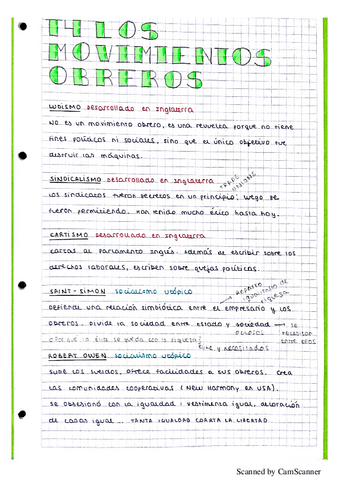 T4 LOS
MOVIMIENTOS
OBREROS
LUDISMO Desarrollado en Inglaterra
No es un movimiento obrero, es una revuelta porque no tiene
fines políticos ni sociales, sino que el único objetivo fue
destruir las máquinas.
SINDICALISMO Desarrollado en Inglaterra → TRADE UNIONS
Los sindicatos fueron secretos en un principio; luego se
fueron permitiendo. Han tenido mucho éxito hasta hoy.
CARTISMO Desarrollado en Inglaterra
Cartas al Parlamento Inglés. Además de escribir sobre los
derechos laborales, escriben sobre quejas políticas.
SAINT-SIMON socialismo utópico → REPARTO igualitario de riqueza
Defiende una relación simbiótica entre el empresario y los
obreros. Divide la sociedad entre estado y sociedad → se
élite y necesitados
entre ellos
ROBERT OWEN socialismo utópico
Sube los sueldos, ofrece facilidades a sus obreros. Crea
las comunidades cooperativas (New Harmony en USA).
Se obsesionó con la igualdad: vestimenta igual, decoración
de casas igual ... TANTA IGUALDAD COARTA LA LIBERTAD
Scanned by CamScanner